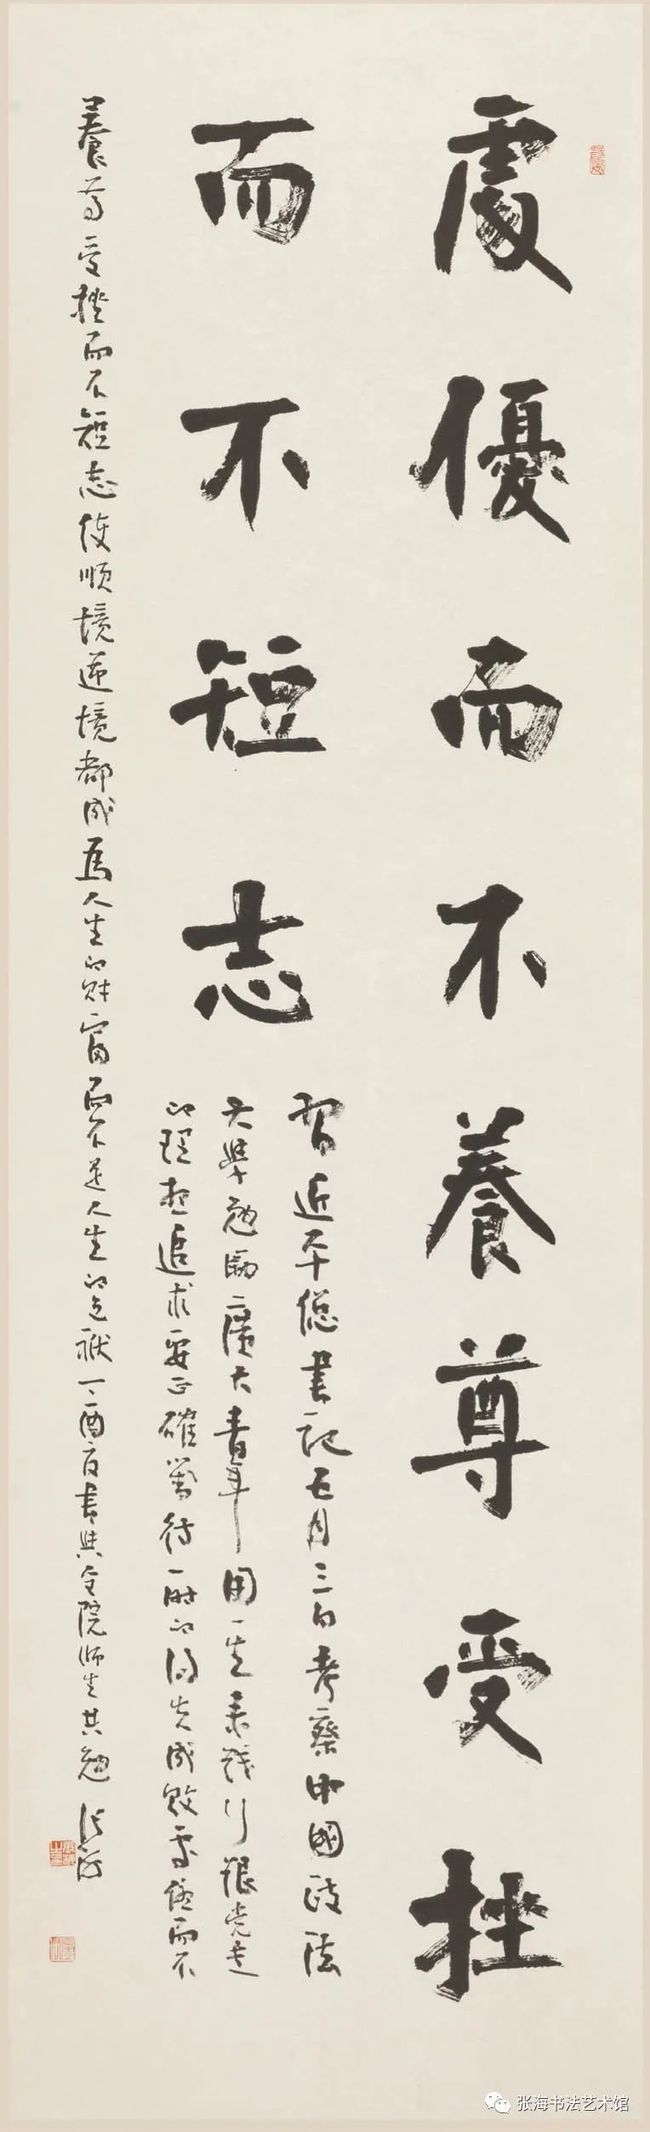 處優而不養尊受挫
而不短志
習近平總書記五月三日考察中國政法
大學勉勵廣大青年用一生來踐行跟黨走
的理想追求要正確對待一時的得失成敗處優而不
養尊受挫而不短志使順境逆境都成爲人生的財富而不是人生的包袱丁酉夏書與全院師生共勉張海
张海书法艺术馆